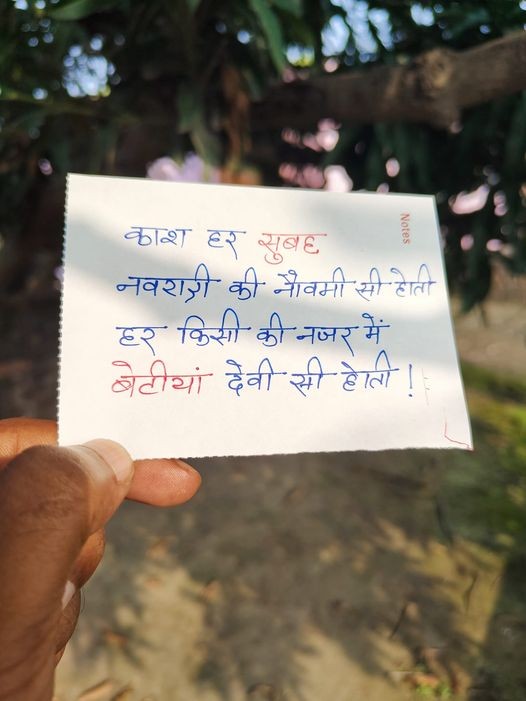 Notes
काश हर सुबह
नवरात्री की नौवमी सी होती
हर किसी की नजर में
बेटीयां देवी सी होती !